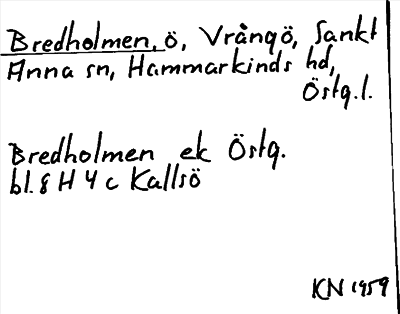 Bredholmen, ö, Vrångö, Sankt
Anna sn, Hammarkinds hd,
Östg.l.
Bredholmen ek Östg.
bl. 8 H 4 c Kallsö
KN 1959